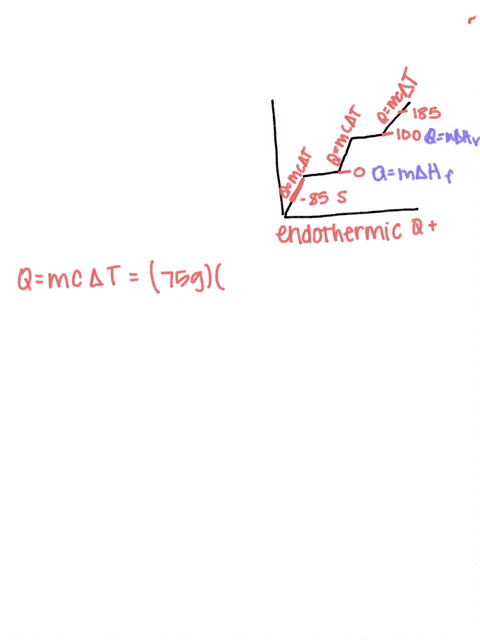 Q=mCΔT
Q=mCΔT
Q=mCΔT
185
100 Q=mΔHv
0 Q=mΔHf
-85 S
endothermic Q+
Q=mCΔT = (75g)(